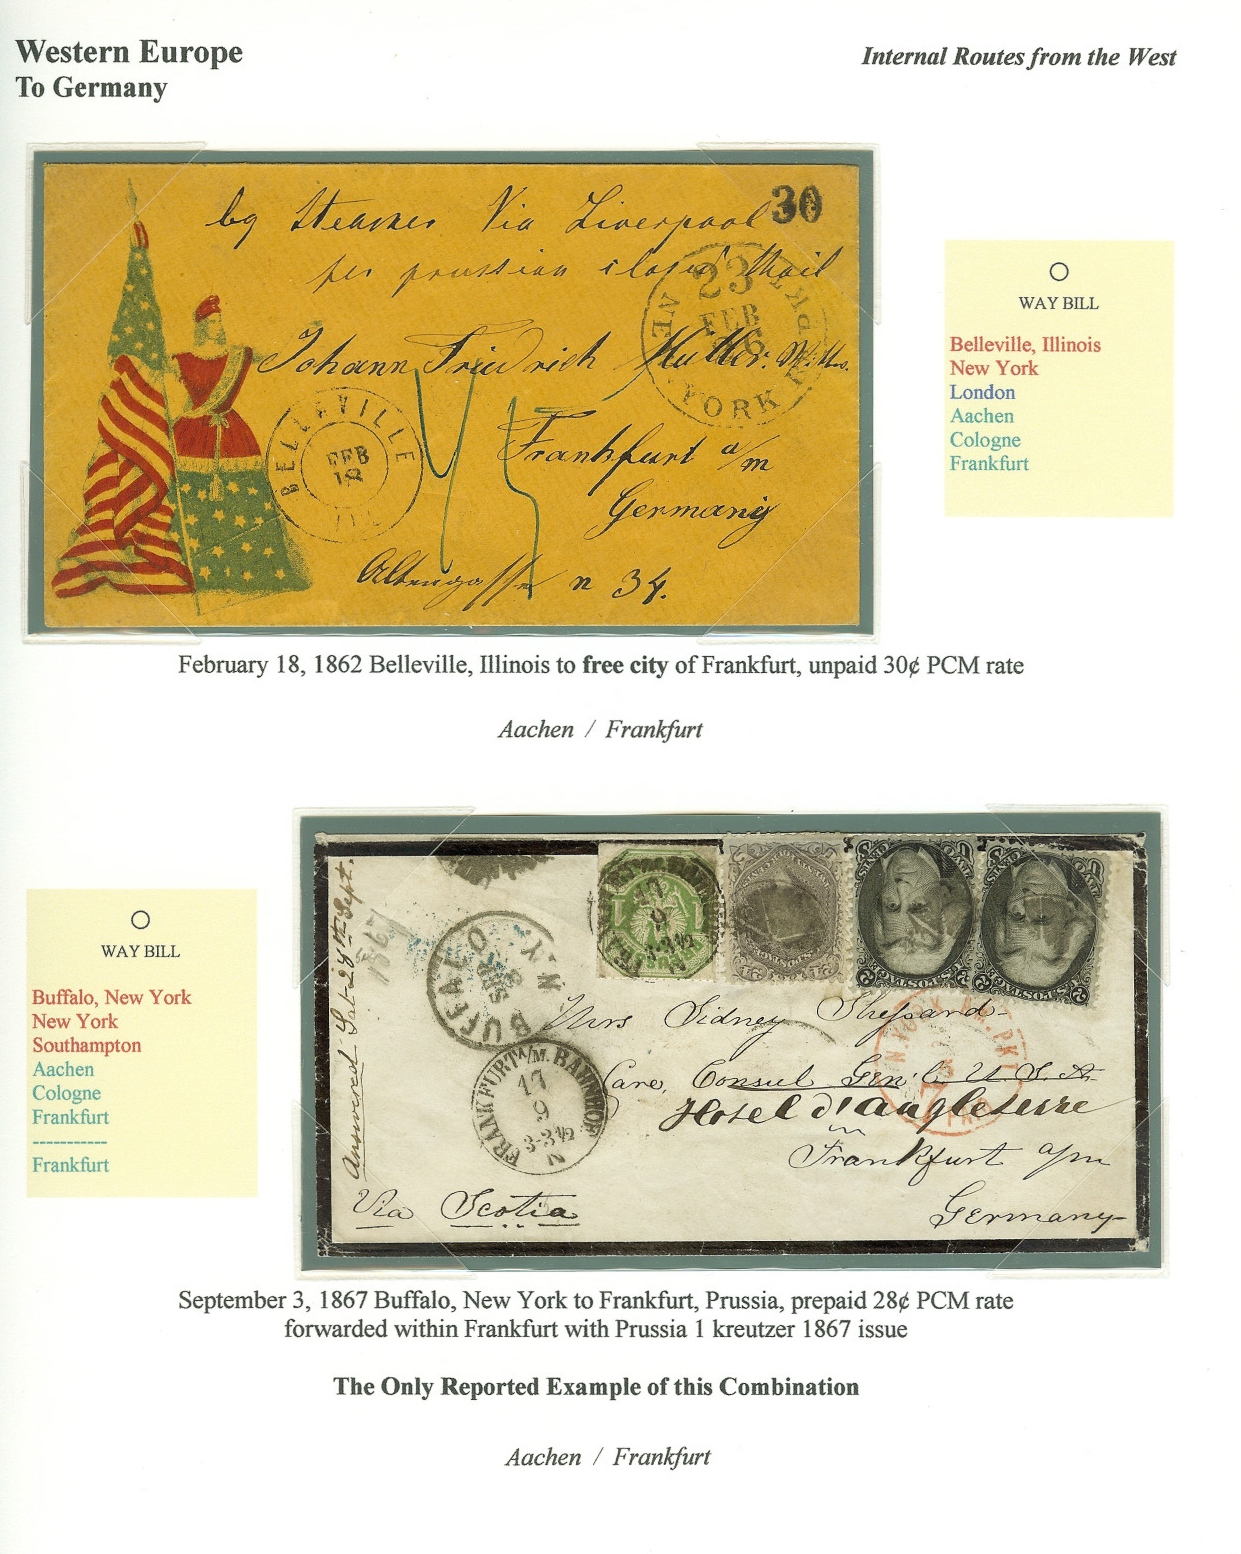 Western Europe
To Germany
Internal Routes from the West
by Steamer Via Liverpool
30
per prussian closed Mail
23
FEB
NEW YORK AM PKT
Johann Friedrich Muller
BELLEVILLE
FEB
18
ILL
45
Frankfurt a/m
Germany
n 34.
WAY BILL
Belleville, Illinois
New York
London
Aachen
Cologne
Frankfurt
February 18, 1862 Belleville, Illinois to free city of Frankfurt, unpaid 30¢ PCM rate
Aachen / Frankfurt
WAY BILL
Buffalo, New York
New York
Southampton
Aachen
Cologne
Frankfurt
-----------
Frankfurt
Answered Sat-28th Sept.
1867
BUFFALO N.Y.
SEP
3
17
9
3-3½
N
Mrs Sidney Sheppard
Care, Consul Gen'l U.S.A.
Hotel d'angleterre
N. YORK AM. PKT
PAID
FRANKFURT A/M. BAHNHOF
17
9
3-3½
N
Frankfurt a/m
Via Scotia
Germany
September 3, 1867 Buffalo, New York to Frankfurt, Prussia, prepaid 28¢ PCM rate
forwarded within Frankfurt with Prussia 1 kreutzer 1867 issue
The Only Reported Example of this Combination
Aachen / Frankfurt